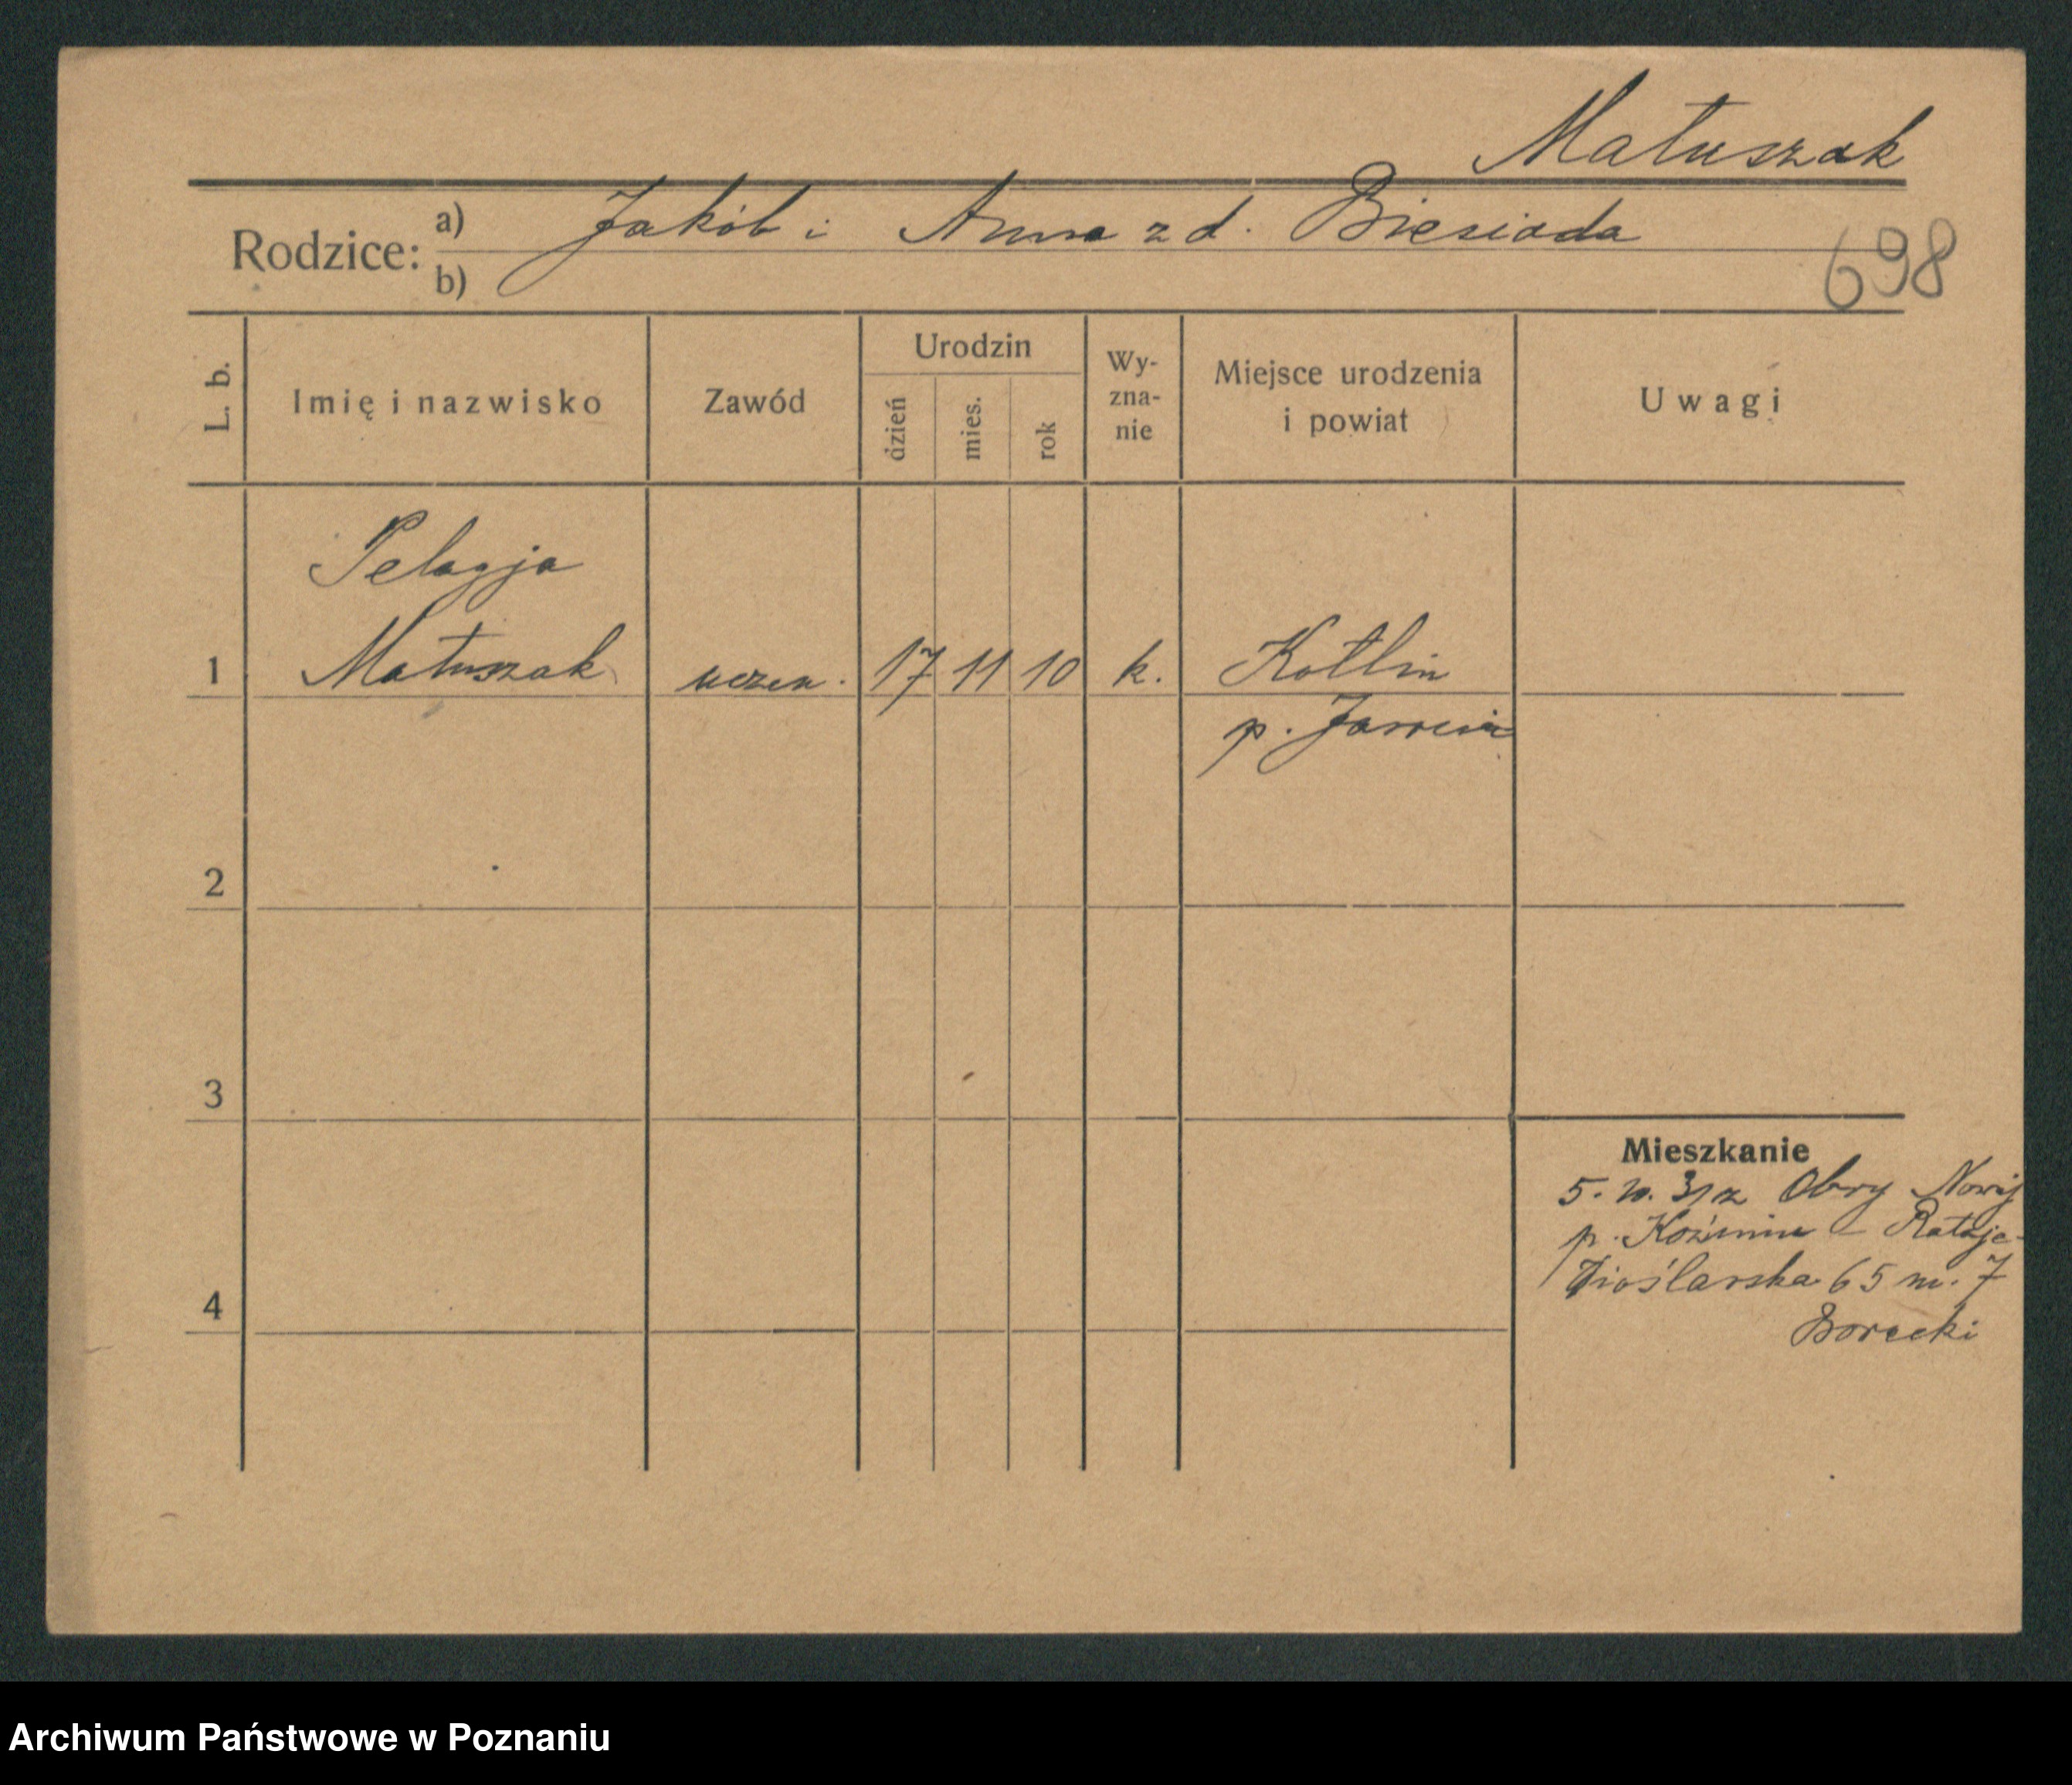 Matuszak
Rodzice: a) Jakób i Anna z d. Biesiada
b)
698
L. b. Imię i nazwisko Zawód Urodzin dzień mies. rok Wy-zna-nie Miejsce urodzenia i powiat Uwagi
Pelagja
1 Matuszak uczen. 17 11 10 k. Kotlin
p. Jarocin
2
3
Mieszkanie
5. 10. 31 z Obry Nowej
p. Koźmin - Rataje
65 m. 7
4
Borecki
Archiwum Państwowe w Poznaniu